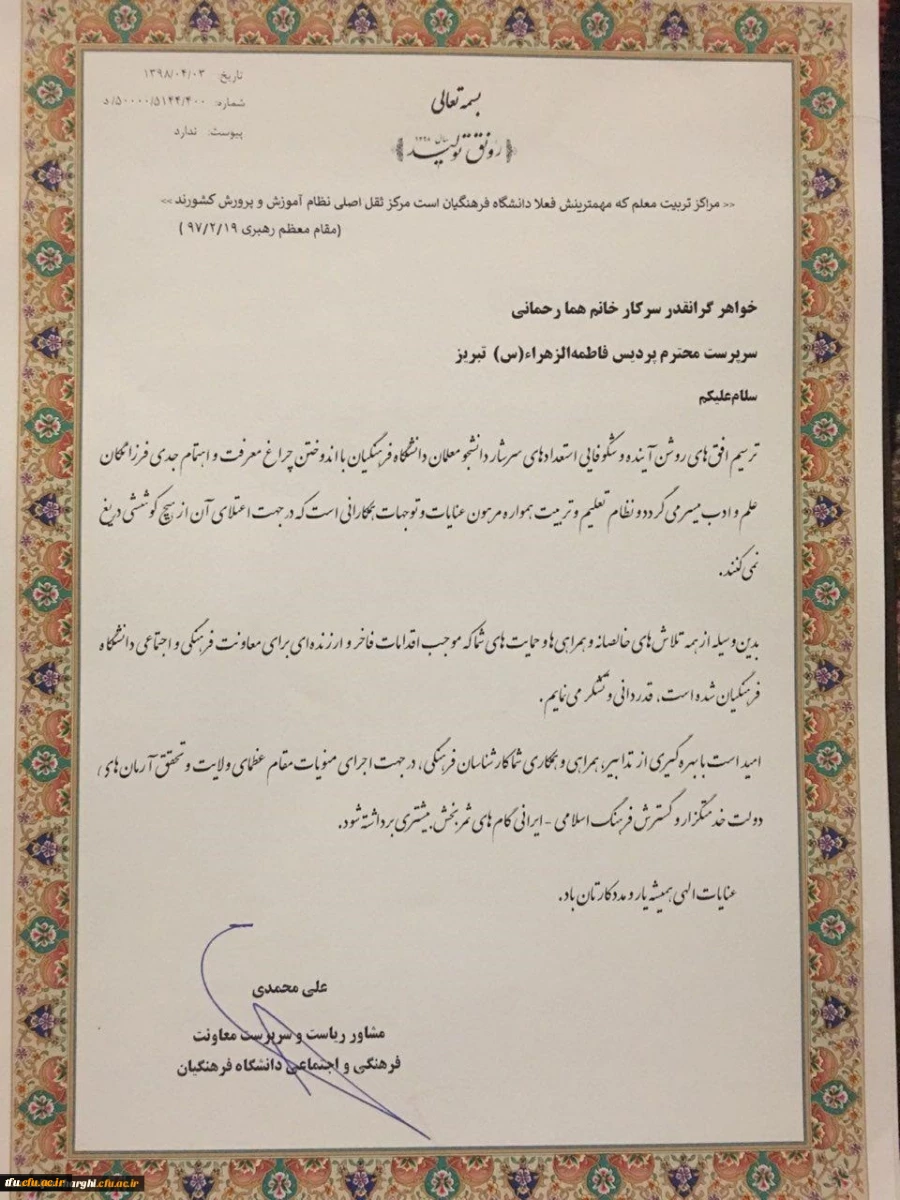 تاریخ: ۱۳۹۸/۰۴/۰۳
شماره: ۵۰۰۰۰/۵۱۴۴/۴۰۰/د
پیوست: ندارد
بسمه تعالی
رونق تولید سال ۱۳۹۸
<< مراکز تربیت معلم که مهمترینش فعلا دانشگاه فرهنگیان است مرکز ثقل اصلی نظام آموزش و پرورش کشورند >>
(مقام معظم رهبری ۹۷/۲/۱۹ )
خواهر گرانقدر سرکار خانم هما رحمانی
سرپرست محترم پردیس فاطمه‌الزهراء(س) تبریز
سلام‌علیکم
ترسیم افق‌های روشن آینده و شکوفایی استعدادهای سرشار دانشجو معلمان دانشگاه فرهنگیان با اندوختن چراغ معرفت و اهتمام جدی فرزانگان
علم و ادب میسر می گردد و نظام تعلیم و تربیت همواره مرهون عنایات و توجهات همکارانی است که در جهت اعتلای آن از هیچ کوششی دریغ
نمی کنند.
بدین وسیله از همه تلاش های خالصانه و همراهی ها و حمایت های شما که موجب اقدامات فاخر و ارزنده ای برای معاونت فرهنگی و اجتماعی دانشگاه
فرهنگیان شده است، قدردانی و تشکر می نمایم.
امید است با بهره گیری از تدابیر، همراهی و همکاری شما کارشناسان فرهنگی، در جهت اجرای منویات مقام عظمای ولایت و تحقق آرمان های
دولت خدمتگزار و گسترش فرهنگ اسلامی - ایرانی گام های ثمربخش بیشتری برداشته شود.
عنایات الهی همیشه یار و مددکارتان باد.
علی محمدی
مشاور ریاست و سرپرست معاونت
فرهنگی و اجتماعی دانشگاه فرهنگیان